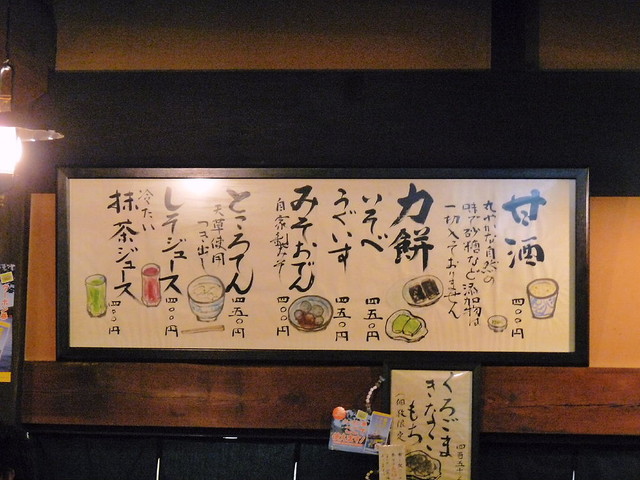 甘酒
味で砂糖など添加物は
一切入っておりません
四〇〇円
力餅
いそべ
四五〇円
うぐいす
四五〇円
みそおでん
自家製みそ
四〇〇円
ところてん
天草使用
つき出し
四五〇円
しそジュース
四〇〇円
冷たい
抹茶ジュース
四〇〇円
くろごま
きなこ
もち